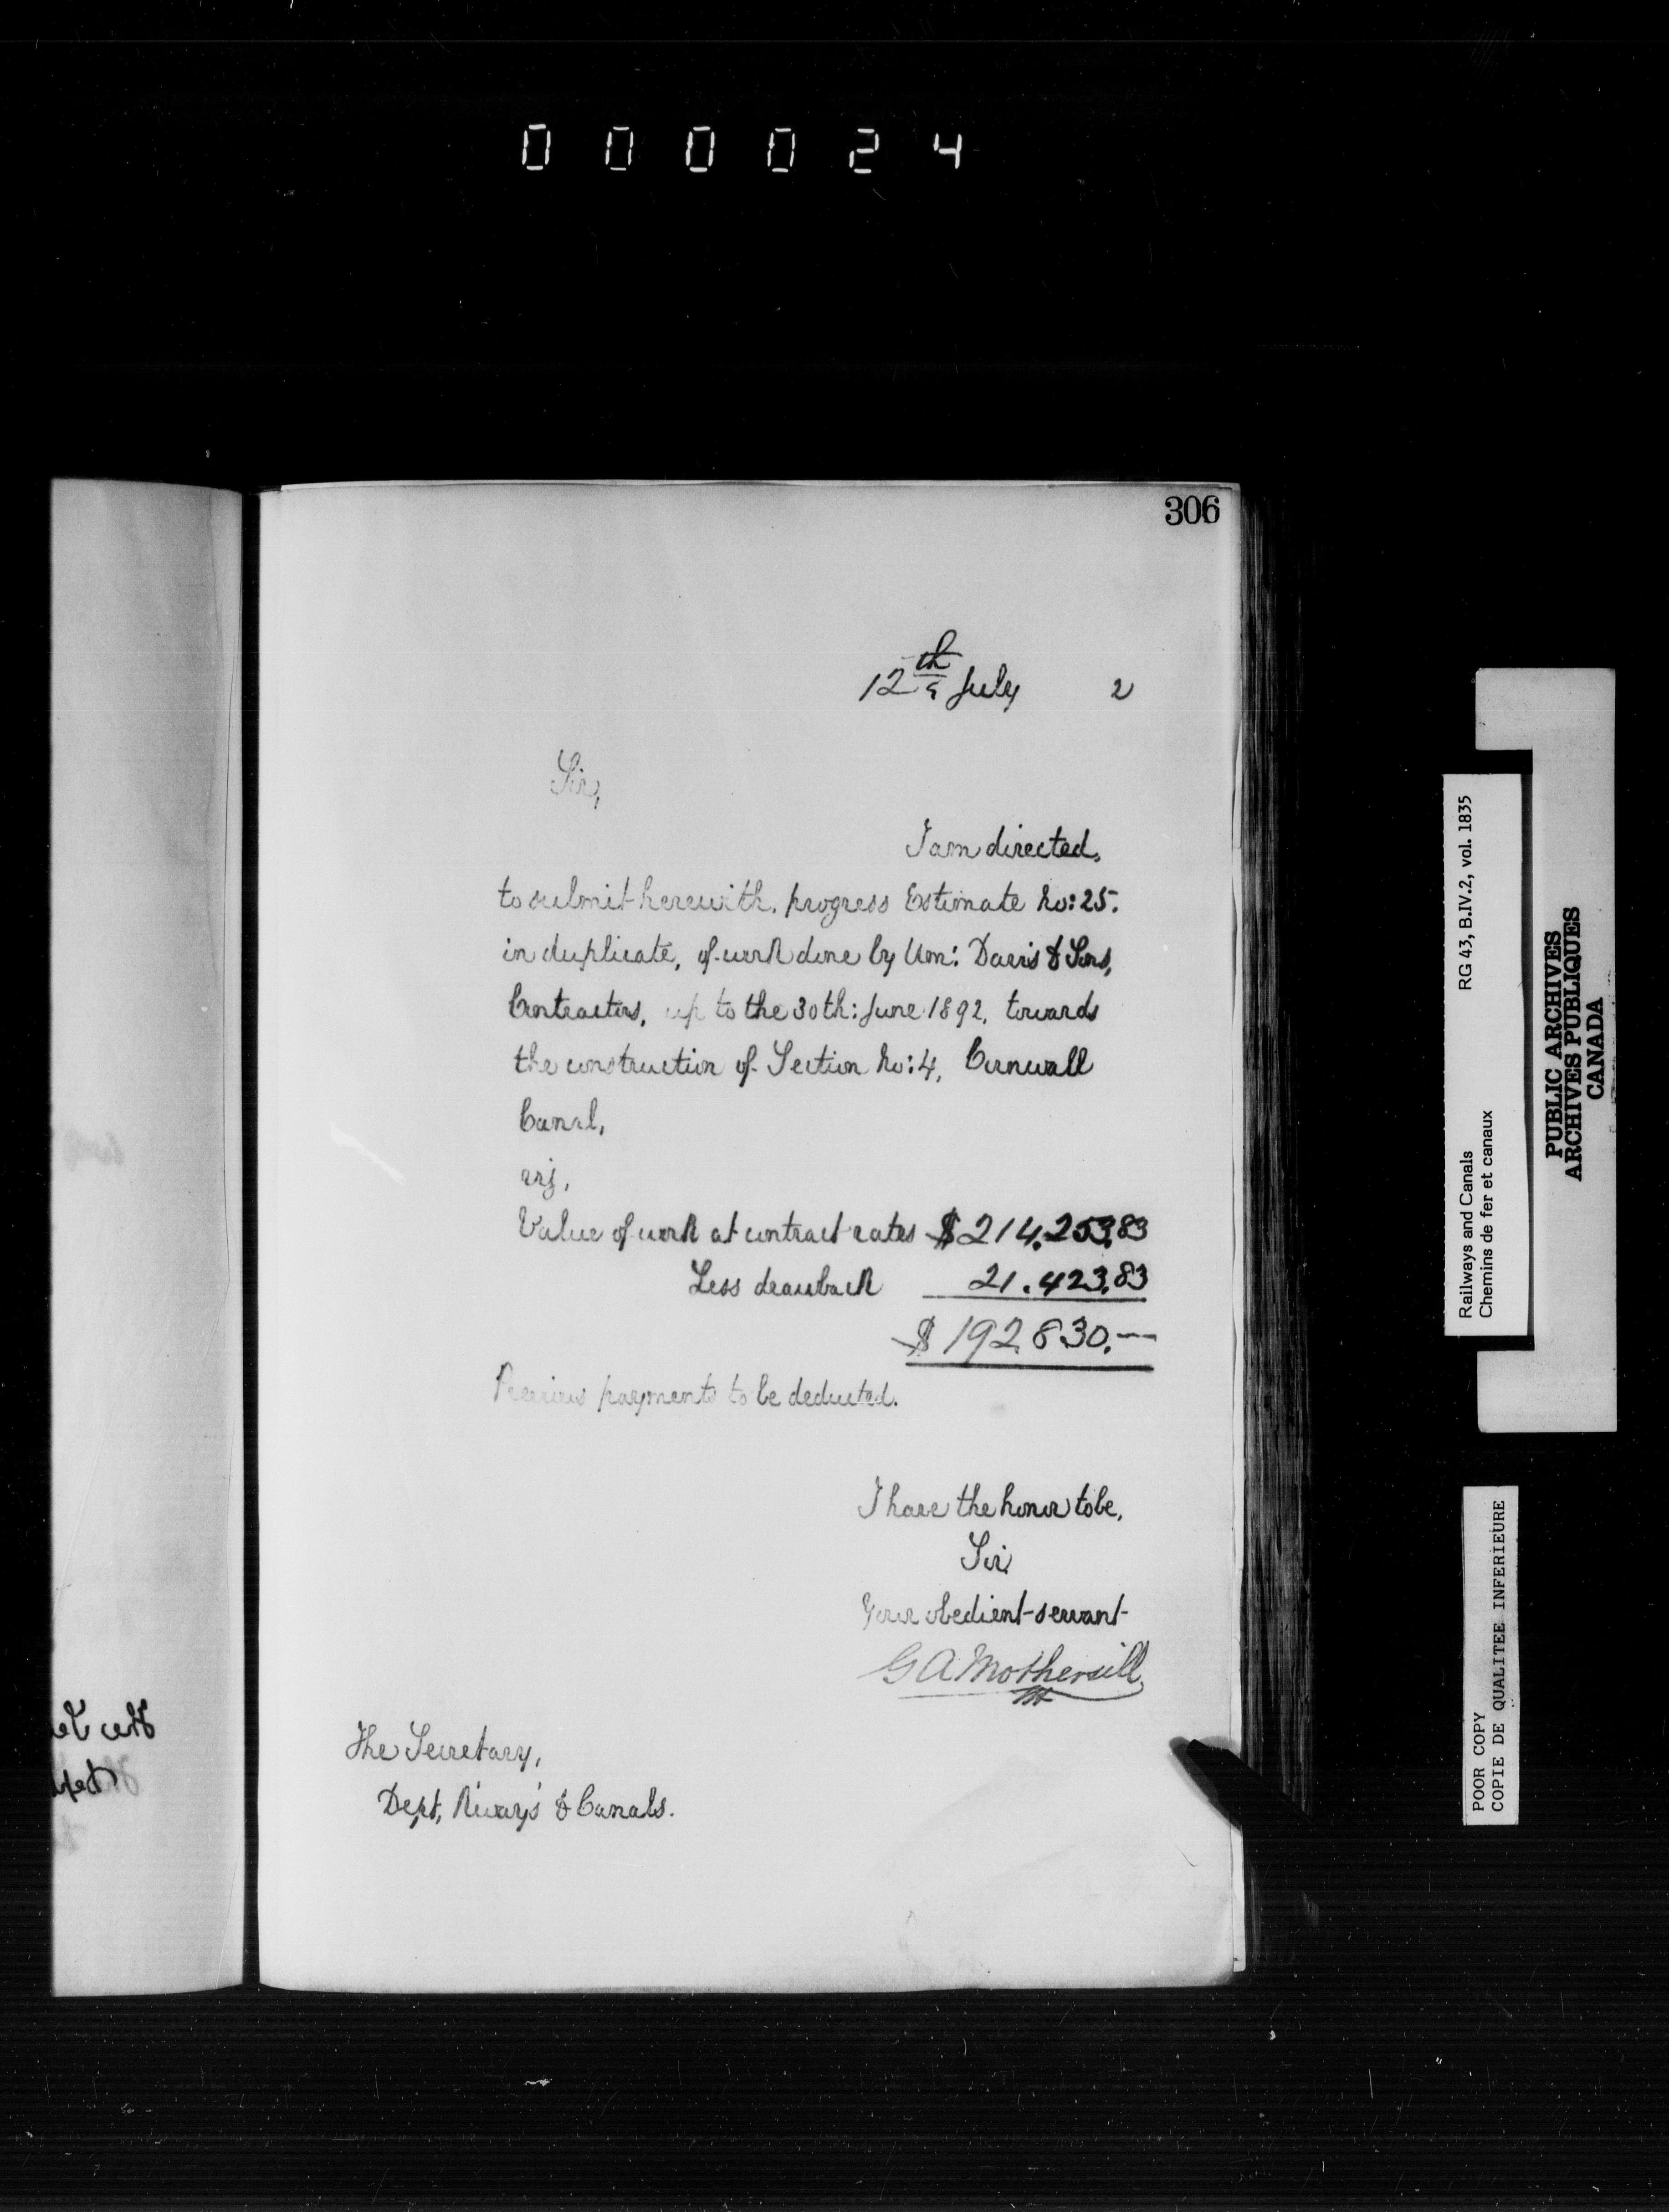 000024
306
12th July 2
Sir,
I am directed,
to submit herewith, progress Estimate No: 25.
in duplicate, of work done by Wm: Davis & Sons,
Contractors, up to the 30th: June 1892, towards
the construction of Section No: 4, Cornwall
Canal,
viz,
Value of work at contract rates $214,253.83
Less drawback 21.423.83
$192,830.—
Previous payments to be deducted.
I have the honor to be,
Sir,
Your obedient servant
G A Mothersill
The Secretary,
Dept, R'ways & Canals.
Railways and Canals RG 43, B.IV.2, vol. 1835
Chemins de fer et canaux
PUBLIC ARCHIVES
ARCHIVES PUBLIQUES
CANADA
POOR COPY
COPIE DE QUALITEE INFERIEURE